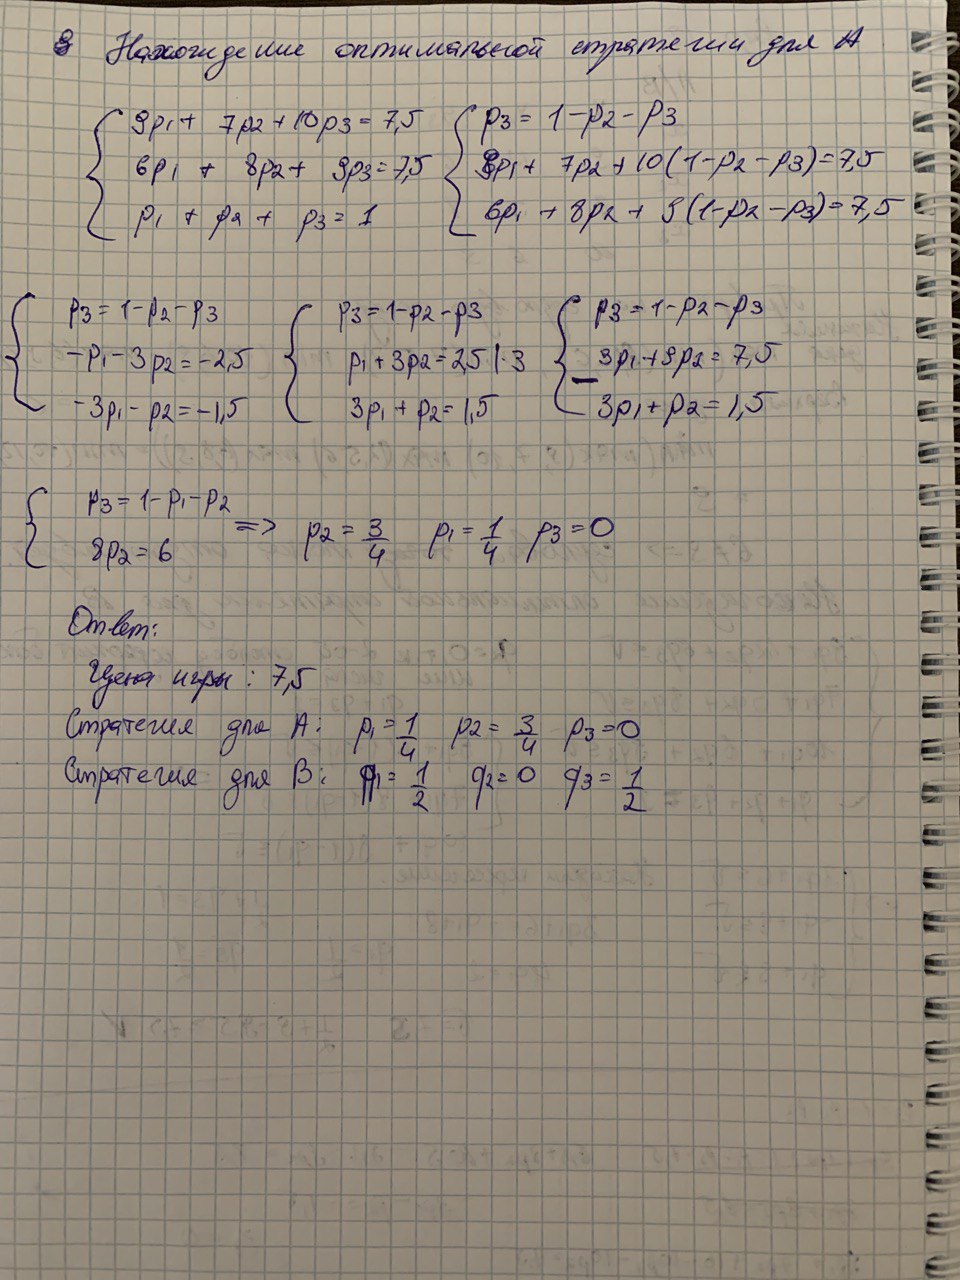 Нахождение оптимальной стратегии для А
9p1 + 7p2 + 10p3 = 7,5 p3 = 1-p2-p3
6p1 + 8p2 + 9p3 = 7,5 9p1 + 7p2 + 10(1-p2-p3) = 7,5
p1 + p2 + p3 = 1 6p1 + 8p2 + 9(1-p2-p3) = 7,5
p3 = 1-p2-p3 p3 = 1-p2-p3 p3 = 1-p2-p3
-p1-3p2 = -2,5 p1+3p2 = 2,5 |·3 3p1+9p2 = 7,5
-3p1-p2 = -1,5 3p1+p2 = 1,5 - 3p1+p2 = 1,5
p3 = 1-p1-p2
8p2 = 6 => p2 = 3/4 p1 = 1/4 p3 = 0
Ответ:
Цена игры: 7,5
Стратегия для А: p1 = 1/4 p2 = 3/4 p3 = 0
Стратегия для В: q1 = 1/2 q2 = 0 q3 = 1/2